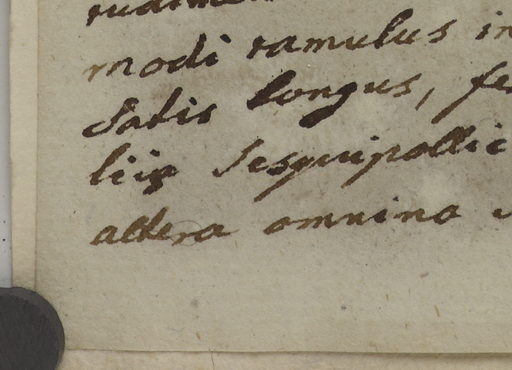 rudime
modi ramulus in
Satis longus, fe
liis Sesquipollic
altera omnino